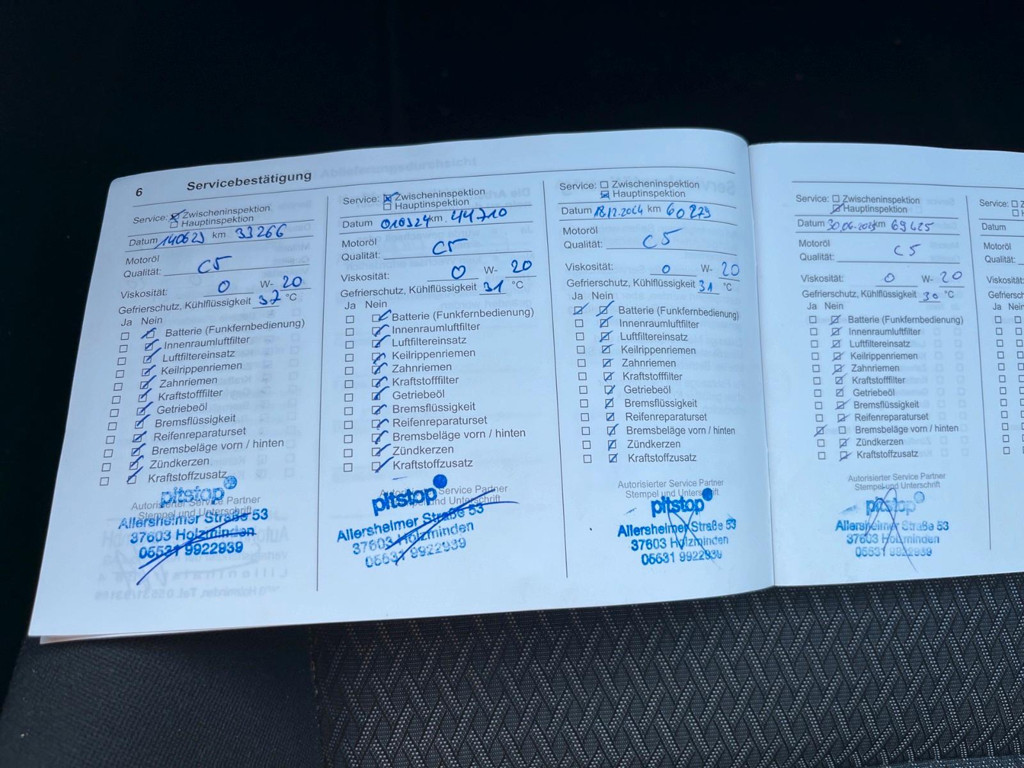 6 Servicebestätigung
Service: Zwischeninspektion
Hauptinspektion
Datum 140623 km 33266
Motoröl
Qualität: C5
Viskosität: 0 W- 20
Gefrierschutz, Kühlflüssigkeit 37 °C
Ja Nein
Batterie (Funkfernbedienung)
Innenraumluftfilter
Luftfiltereinsatz
Keilrippenriemen
Zahnriemen
Kraftstofffilter
Getriebeöl
Bremsflüssigkeit
Reifenreparaturset
Bremsbeläge vorn / hinten
Zündkerzen
Kraftstoffzusatz
Autorisierter Service Partner
Stempel und Unterschrift
pitstop
Allersheimer Straße 53
37603 Holzminden
05531 9922939
Service: Zwischeninspektion
Hauptinspektion
Datum 010324 km 44710
Motoröl
Qualität: C5
Viskosität: 0 W- 20
Gefrierschutz, Kühlflüssigkeit 31 °C
Ja Nein
Batterie (Funkfernbedienung)
Innenraumluftfilter
Luftfiltereinsatz
Keilrippenriemen
Zahnriemen
Kraftstofffilter
Getriebeöl
Bremsflüssigkeit
Reifenreparaturset
Bremsbeläge vorn / hinten
Zündkerzen
Kraftstoffzusatz
Service Partner
und Unterschrift
pitstop
Allersheimer Straße 53
37603 Holzminden
05531 9922939
Service: Zwischeninspektion
Hauptinspektion
Datum 18.12.2024 km 60229
Motoröl
Qualität: C5
Viskosität: 0 W- 20
Gefrierschutz, Kühlflüssigkeit 31 °C
Ja Nein
Batterie (Funkfernbedienung)
Innenraumluftfilter
Luftfiltereinsatz
Keilrippenriemen
Zahnriemen
Kraftstofffilter
Getriebeöl
Bremsflüssigkeit
Reifenreparaturset
Bremsbeläge vorn / hinten
Zündkerzen
Kraftstoffzusatz
Autorisierter Service Partner
Stempel und Unterschrift
pitstop
Allersheimer Straße 53
37603 Holzminden
05531 9922939
Service: Zwischeninspektion
Hauptinspektion
Datum 30.06.2025 km 69425
Motoröl
Qualität: C5
Viskosität: 0 W- 20
Gefrierschutz, Kühlflüssigkeit 30 °C
Ja Nein
Batterie (Funkfernbedienung)
Innenraumluftfilter
Luftfiltereinsatz
Keilrippenriemen
Zahnriemen
Kraftstofffilter
Getriebeöl
Bremsflüssigkeit
Reifenreparaturset
Bremsbeläge vorn / hinten
Zündkerzen
Kraftstoffzusatz
Autorisierter Service Partner
Stempel und Unterschrift
pitstop
Allersheimer Straße 53
37603 Holzminden
05531 9922939
Service:
Datum
Motoröl
Qualität:
Viskosität:
Ja Nein